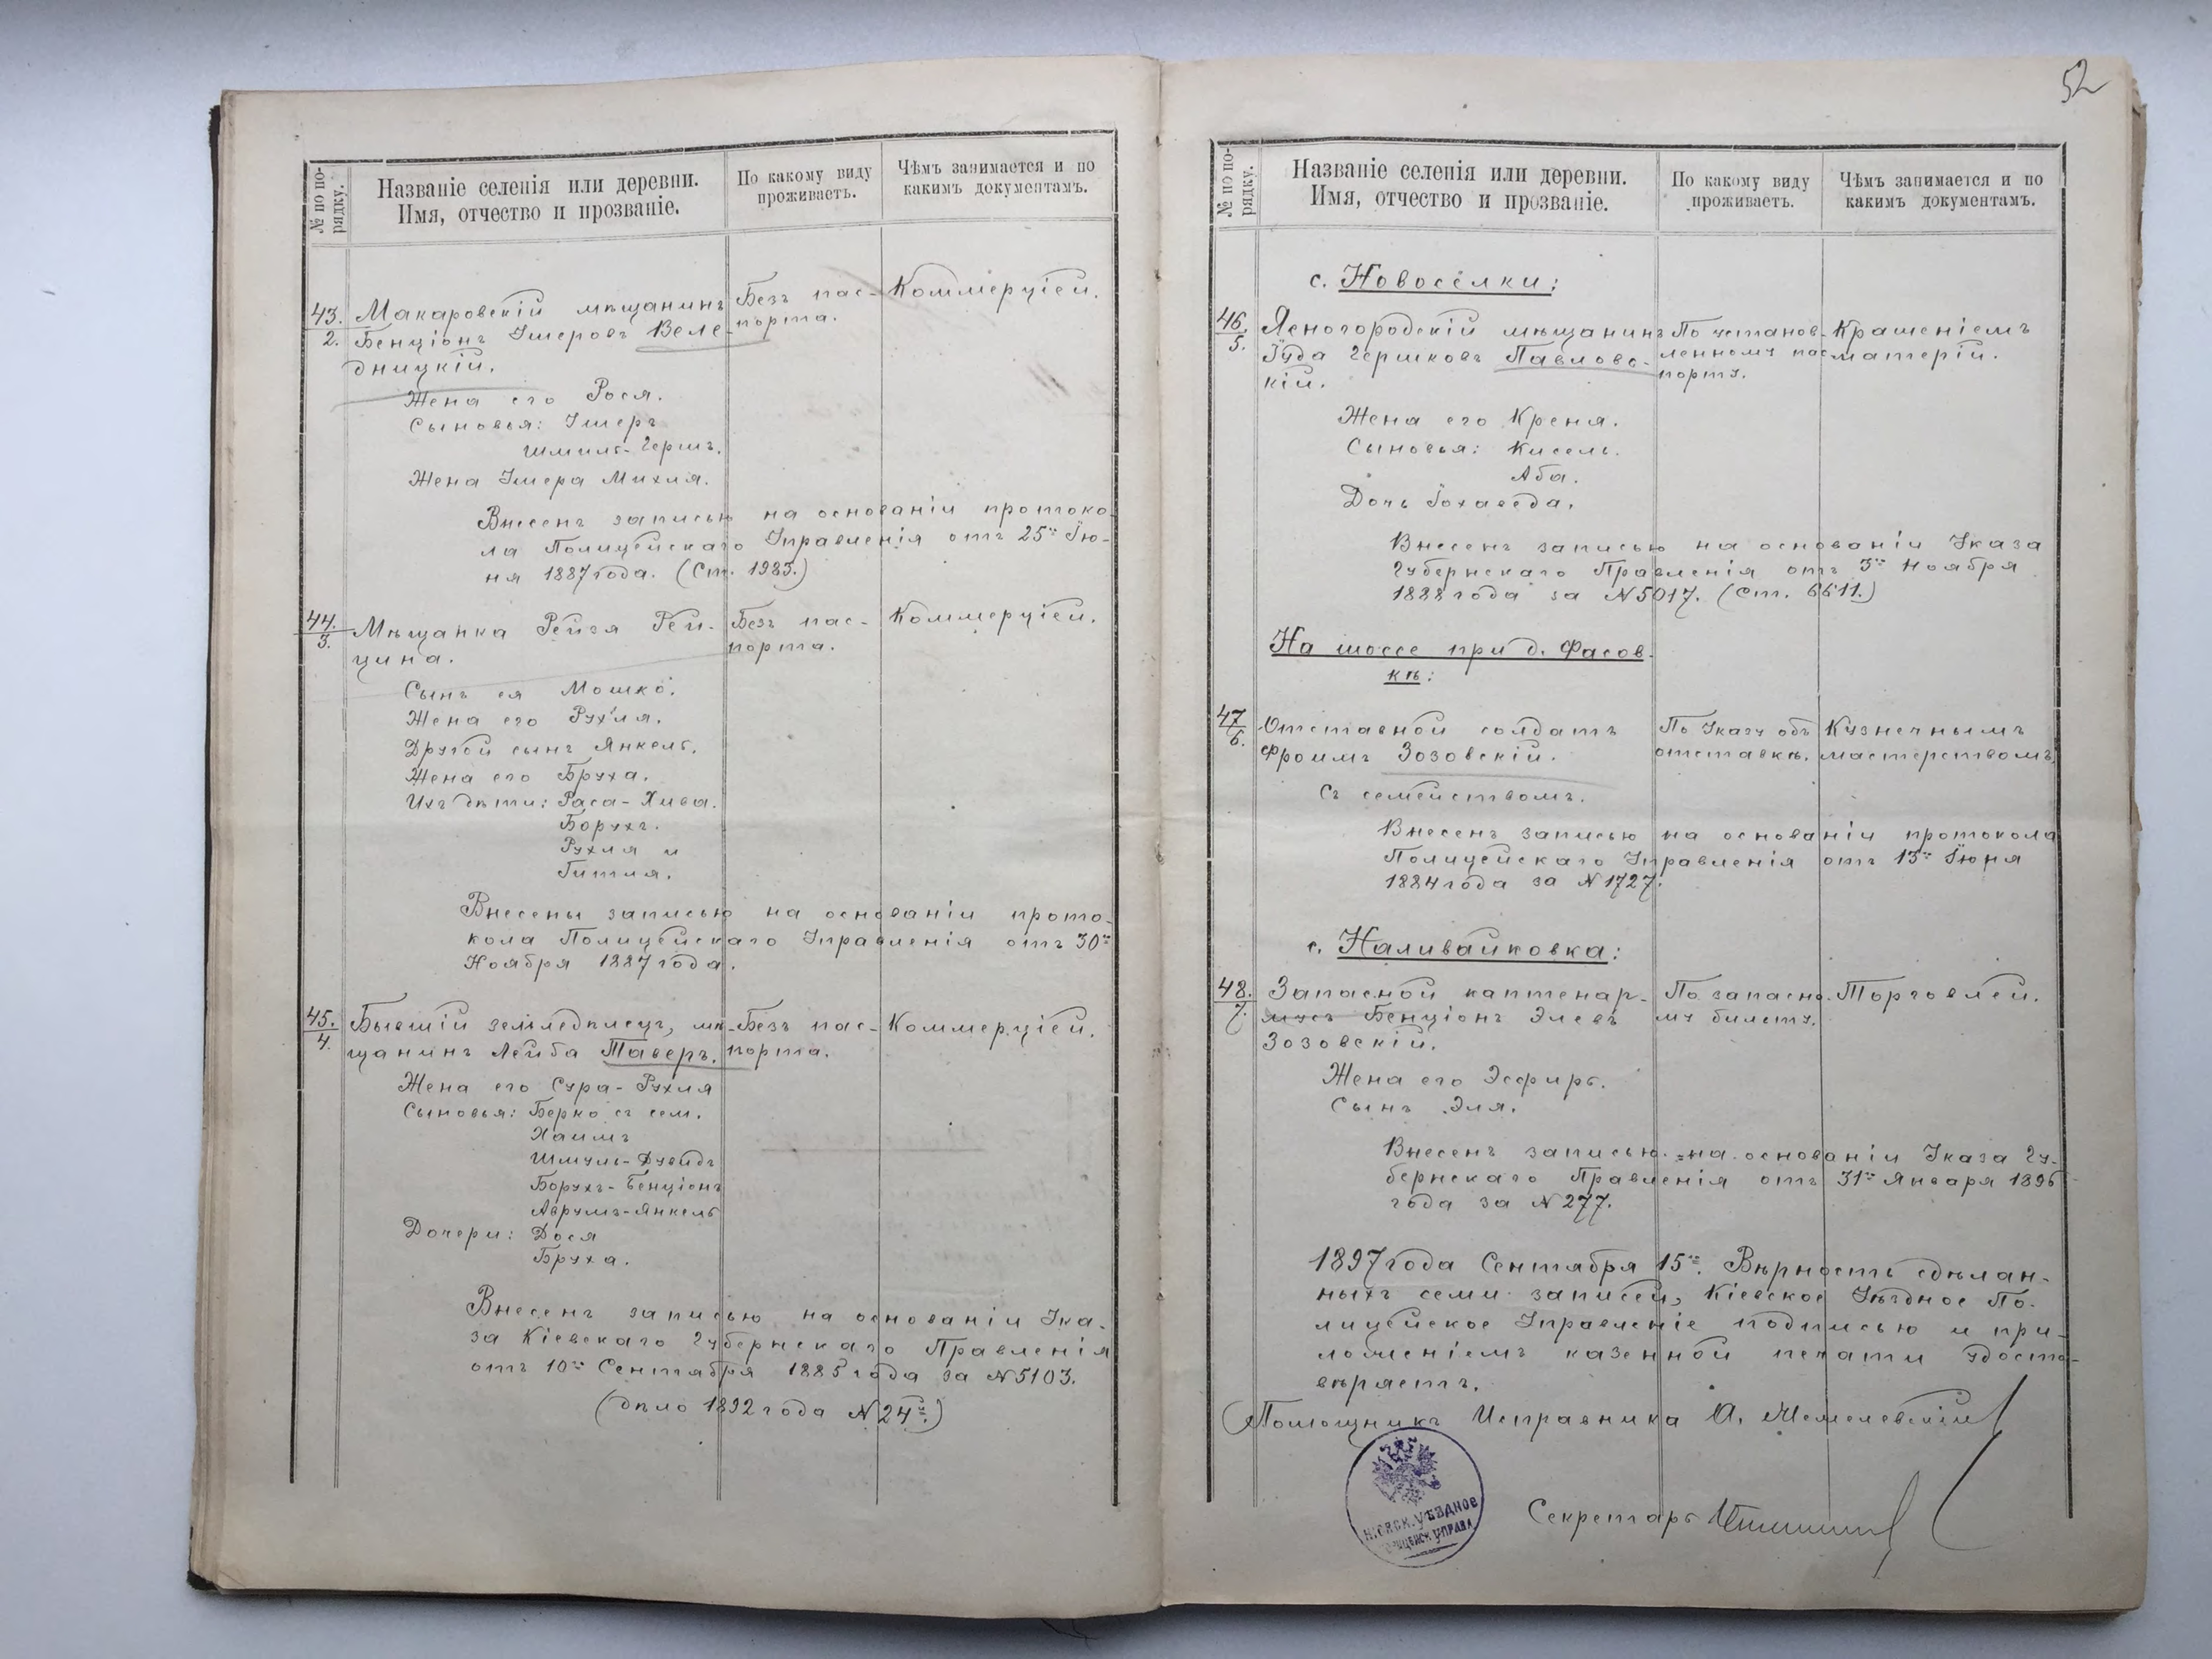 № по по-
рядку.
Названіе селенія или деревни.
Имя, отчество и прозваніе.
По какому виду
проживаетъ.
Чѣмъ занимается и по
какимъ документамъ.
43.
2.
Макаровскій мѣщанинъ
Бенціонъ Умеровъ Веле-
дницкій.
Безъ пас-
порта.
Коммерціей.
Жена его Рося.
Сыновья: Умеръ
Шмиль-Гершъ.
Жена Умера Михля.
Внесенъ записью на основаніи протоко-
ла Полицейскаго Управленія отъ 25го Iю-
ня 1887 года. (Ст. 1983.)
44.
3.
Мѣщанка Рейзя Рей-
цина.
Безъ пас-
порта.
Коммерціей.
Сынъ ея Мошко.
Жена его Рухля.
Другой сынъ Янкель.
Жена его Бруха.
Ихъ дѣти: Раса-Хива.
Борухъ.
Рухля и
Гитля.
Внесены записью на основаніи прото-
кола Полицейскаго Управленія отъ 30го
Ноября 1887 года.
45.
4.
Бывшій земледѣлецъ, мѣ-
щанинъ Лейба Таверъ.
Безъ пас-
порта.
Коммерціей.
Жена его Сура-Рухля
Сыновья: Берко съ сем.
Хаимъ
Шмуль-Дувидъ
Борухъ-Бенціонъ
Аврумъ-Янкель
Дочери: Дося
Бруха.
Внесенъ записью на основаніи Ука-
за Кіевскаго Губернскаго Правленія
отъ 10го Сентября 1885 года за №5103.
(дѣло 1892 года №24.)
52
№ по по-
рядку.
Названіе селенія или деревни.
Имя, отчество и прозваніе.
По какому виду
проживаетъ.
Чѣмъ занимается и по
какимъ документамъ.
с. Новосёлки:
46.
5.
Ясногородскій мѣщанинъ
Iуда Гершковъ Павловс-
кій.
По установ-
ленному пас-
порту.
Крашеніемъ
матерій.
Жена его Креня.
Сыновья: Кисель.
Аба.
Дочь Iохаведа.
Внесенъ записью на основаніи Указа
Губернскаго Правленія отъ 3го Ноября
1888 года за №5017. (ст. 6611.)
На шоссе при д. Фасов-
кѣ:
47
6.
Отставной солдатъ
Фроимъ Зозовскій.
По Указу объ
отставкѣ.
Кузнечнымъ
мастерствомъ.
Съ семействомъ.
Внесенъ записью на основаніи протокола
Полицейскаго Управленія отъ 13го Iюня
1884 года за №1727.
с. Наливайковка:
48.
7.
Запасной каптенар-
мусъ Бенціонъ Элевъ
Зозовскій.
По запасно-
му билету.
Торговлей.
Жена его Эсфирь.
Сынъ Эля.
Внесенъ записью на основаніи Указа Гу-
бернскаго Правленія отъ 31го Января 1896
года за №277.
1897 года Сентября 15го. Вѣрность сдѣлан-
ныхъ семи записей, Кіевское Уѣздное По-
лицейское Управленіе подписью и при-
ложеніемъ казенной печати удосто-
вѣряетъ.
Помощникъ Исправника
Секретарь
КІЕВСК. УѢЗДНОЕ
ПОЛИЦЕЙСК. УПРАВЛ.